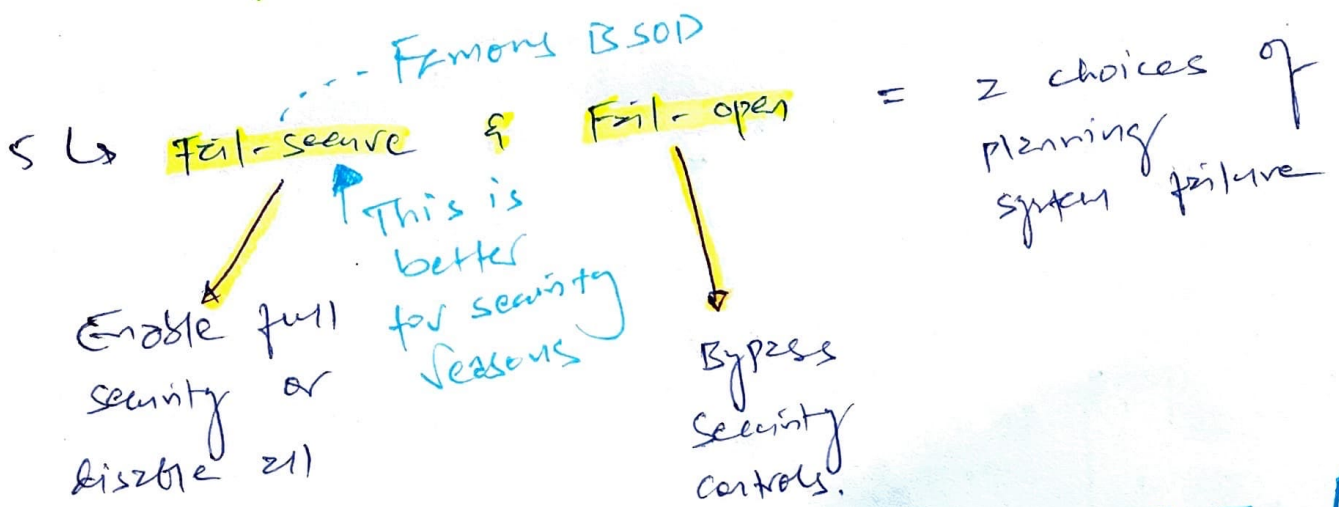 Famous BSOD
5 ↳ Fail-secure & Fail-open = 2 choices of
planning
system failure
This is
better
for security
reasons
Enable full
security or
disable all
Bypass
security
controls.